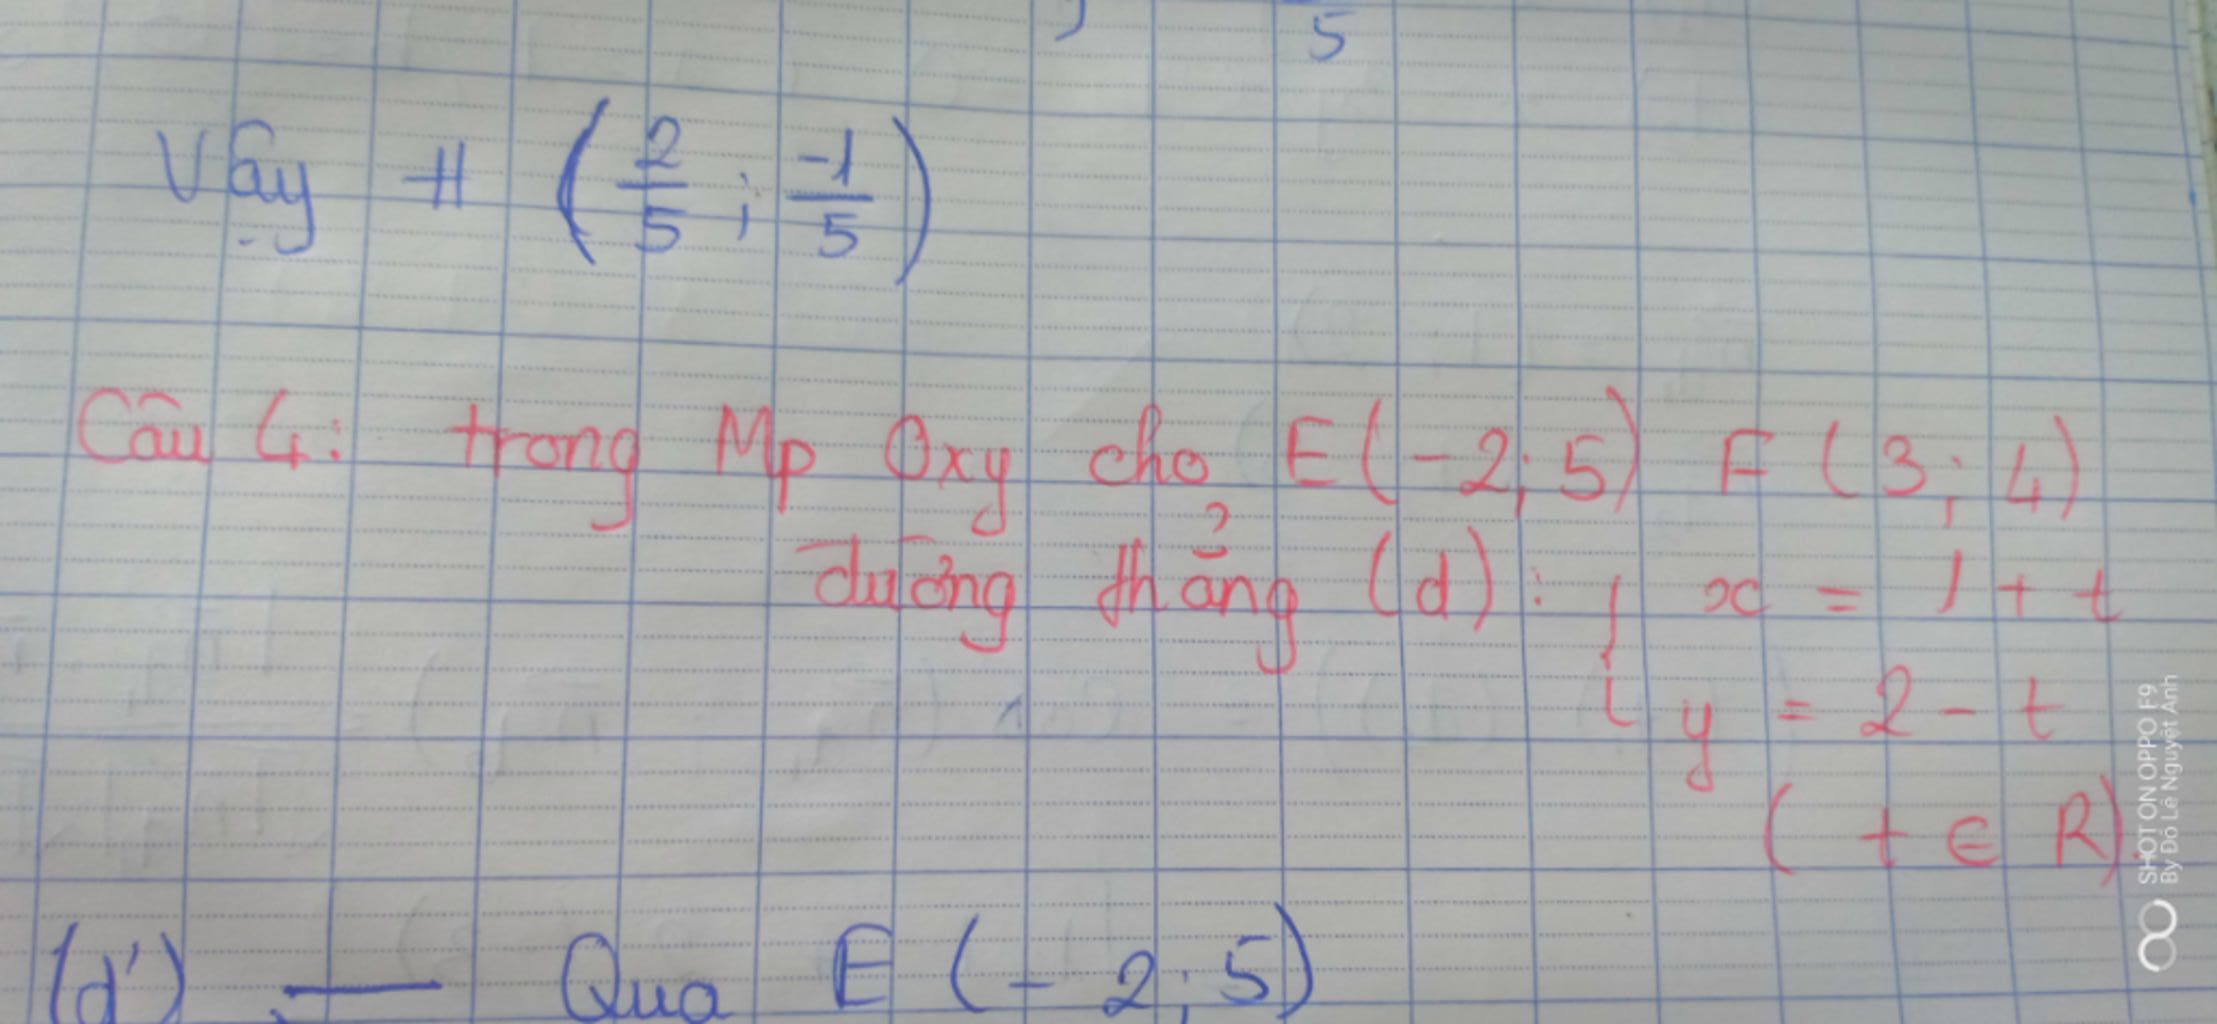 5
Vậy H (2/5 ; -1/5)
Câu 4: trong Mp Oxy cho E(-2; 5) F (3; 4)
đường thẳng (d): { x = 1 + t
y = 2 - t
(t ∈ R).
(d') Qua E (-2; 5)
SHOT ON OPPO F9
By Đỗ Lê Nguyệt Ánh